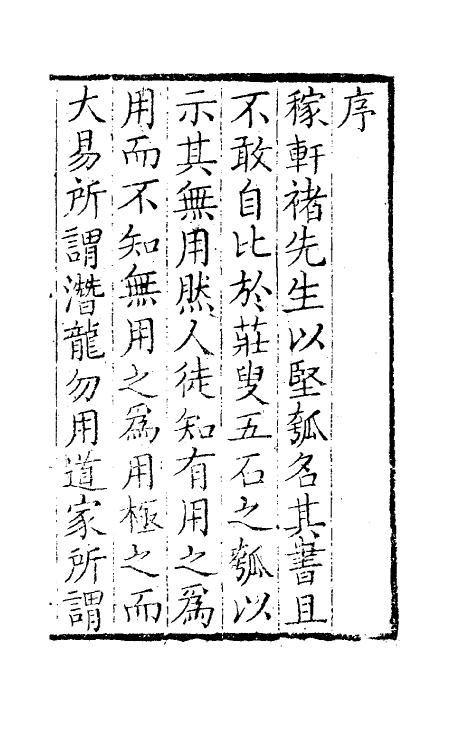 序
稼軒褚先生以堅瓠名其書且
不敢自比於莊叟五石之瓠以
示其無用然人徒知有用之爲
用而不知無用之爲用極之而
大易所謂潛龍勿用道家所謂